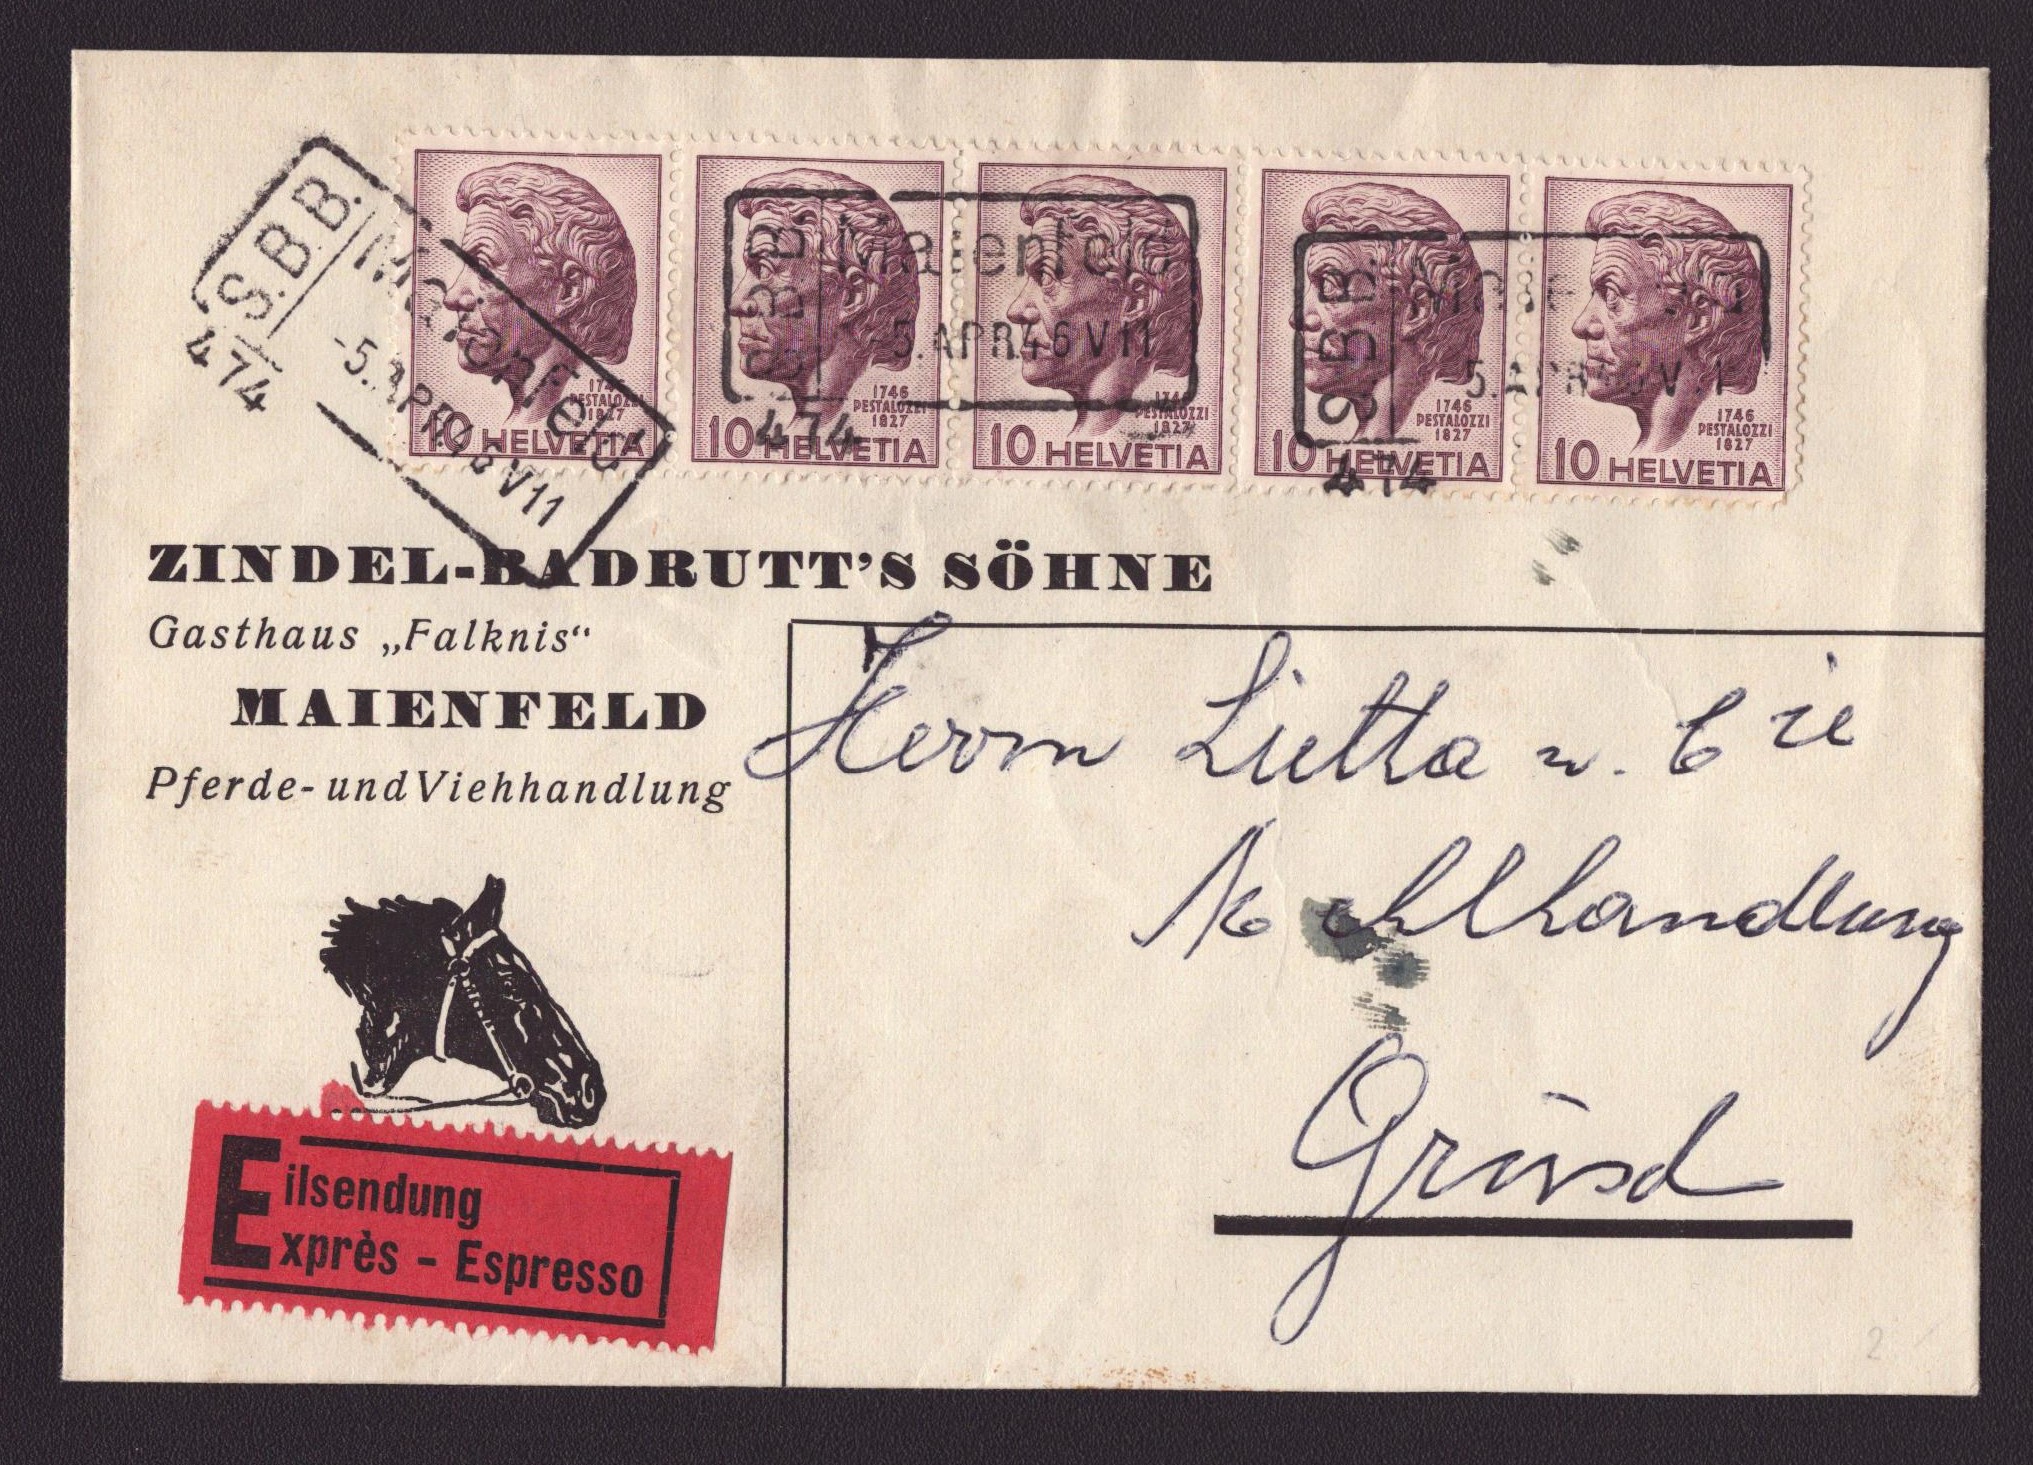 S.B.B. Maienfeld
-5.APR.46 V11
474
S B B Maienfeld
-5.APR.46 V11
474
S B B
5.APR
474
1746
PESTALOZZI
1827
10 HELVETIA
1746
PESTALOZZI
1827
10 HELVETIA
1746
PESTALOZZI
1827
10 HELVETIA
1746
PESTALOZZI
1827
10 HELVETIA
1746
PESTALOZZI
1827
10 HELVETIA
ZINDEL-BADRUTT'S SÖHNE
Gasthaus „Falknis“
MAIENFELD
Pferde- und Viehhandlung
Herrn Lietha u. Cie
Mehlhandlung
Grüsch
Eilsendung
Exprès - Espresso
2